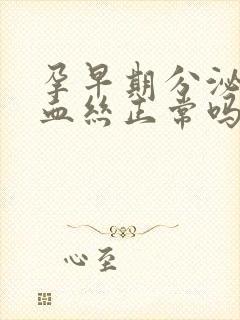 孕早期分泌
血丝正常吗
心至